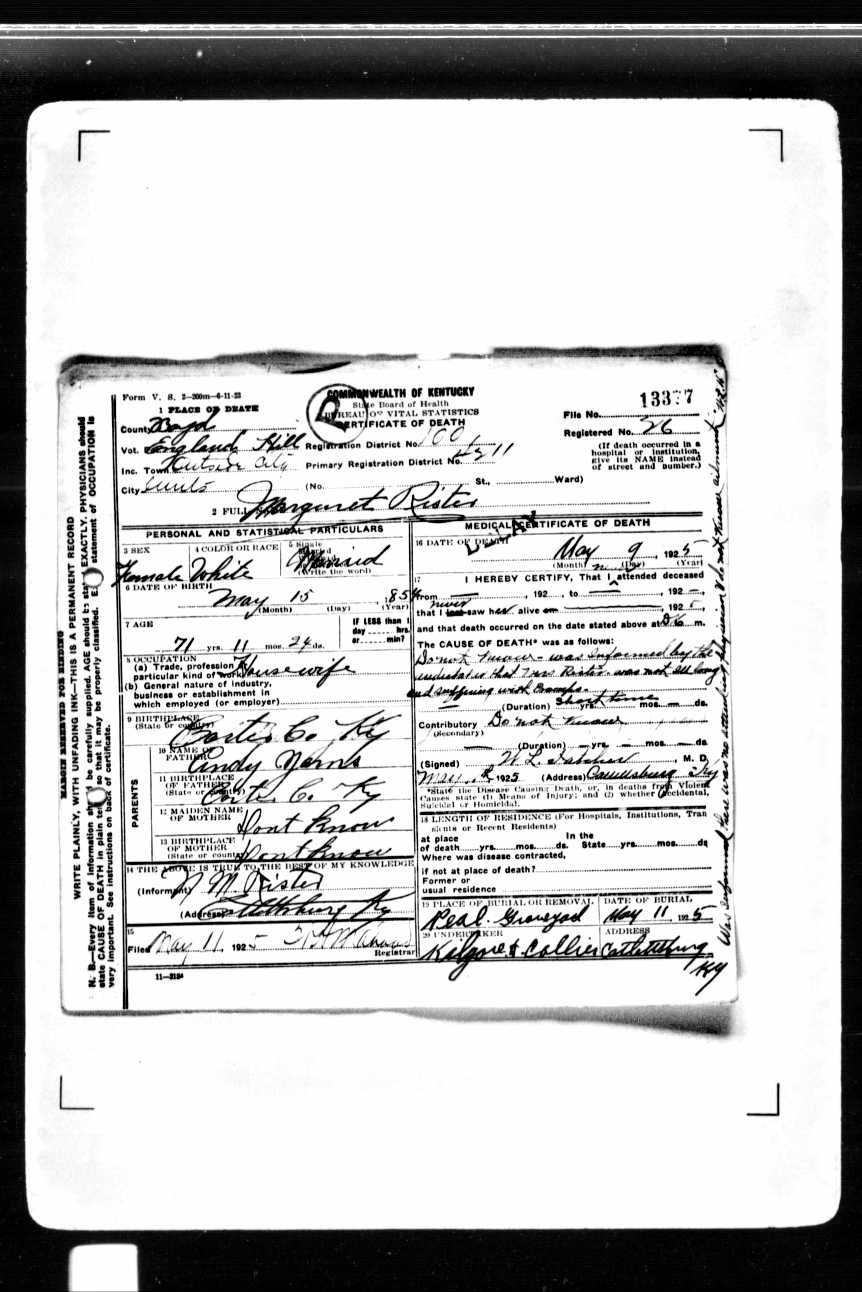 Form V. S. 2-200m-6-11-23
COMMONWEALTH OF KENTUCKY
State Board of Health
BUREAU OF VITAL STATISTICS
CERTIFICATE OF DEATH
R
File No. 13377
Registered No. 26
(If death occurred in a hospital or institution, give its NAME instead of street and number.)
1 PLACE OF DEATH
County Boyd
Vot. England Hill Registration District No. 100
Inc. Town Outside City Primary Registration District No.
City limits (No. St., Ward)
2 FULL Margaret Rister
PERSONAL AND STATISTICAL PARTICULARS
3 SEX Female
4 COLOR OR RACE White
5 Single Married
(Write the word)
6 DATE OF BIRTH
May 15, 1854
(Month) (Day) (Year)
7 AGE
71 yrs. 11 mos. 24 ds.
IF LESS than 1 day hrs. or min?
8 OCCUPATION
(a) Trade, profession or particular kind of work Housewife
(b) General nature of industry, business or establishment in which employed (or employer)
9 BIRTHPLACE
(State or country) Carter Co. Ky
PARENTS
10 NAME OF FATHER Andy
11 BIRTHPLACE OF FATHER
(State or country) Carter Co. Ky
12 MAIDEN NAME OF MOTHER Dont Know
13 BIRTHPLACE OF MOTHER
(State or country) Dont know
14 THE ABOVE IS TRUE TO THE BEST OF MY KNOWLEDGE
(Informant) M. Rister
(Address) Catlettsburg Ky
15
Filed May 11, 1925
Registrar
11-3184
MEDICAL CERTIFICATE OF DEATH
16 DATE OF DEATH
May 9, 1925
(Month) (Day) (Year)
17 I HEREBY CERTIFY, That I attended deceased
from , 192 , to , 192
that I last never saw her alive on , 192
and that death occurred on the date stated above at m.
The CAUSE OF DEATH* was as follows:
Do not know - was informed by the
undertaker that Mrs Rister was not ill long
and suffering with Cramps.
(Duration) Short time yrs. mos. ds.
Contributory Do not know
(Secondary)
(Duration) yrs. mos. ds.
(Signed) W. L. M. D.
May 1925 (Address) Catlettsburg Ky
*State the Disease Causing Death, or, in deaths from Violent Causes state (1) Means of Injury; and (2) whether Accidental, Suicidal or Homicidal.
18 LENGTH OF RESIDENCE (For Hospitals, Institutions, Transients or Recent Residents)
at place of death yrs. mos. ds. In the State yrs. mos. ds.
Where was disease contracted,
if not at place of death?
Former or
usual residence
19 PLACE OF BURIAL OR REMOVAL
Peal. Graveyard
DATE OF BURIAL
May 11, 1925
20 UNDERTAKER
Kilgore & Collier
ADDRESS
Catlettsburg
Ky
MARGIN RESERVED FOR BINDING
WRITE PLAINLY, WITH UNFADING INK—THIS IS A PERMANENT RECORD
N. B.—Every item of information should be carefully supplied. AGE should be stated EXACTLY. PHYSICIANS should
state CAUSE OF DEATH in plain terms so that it may be properly classified. Exact statement of OCCUPATION is
very important. See instructions on back of certificate.
Was informed there was no attending physician